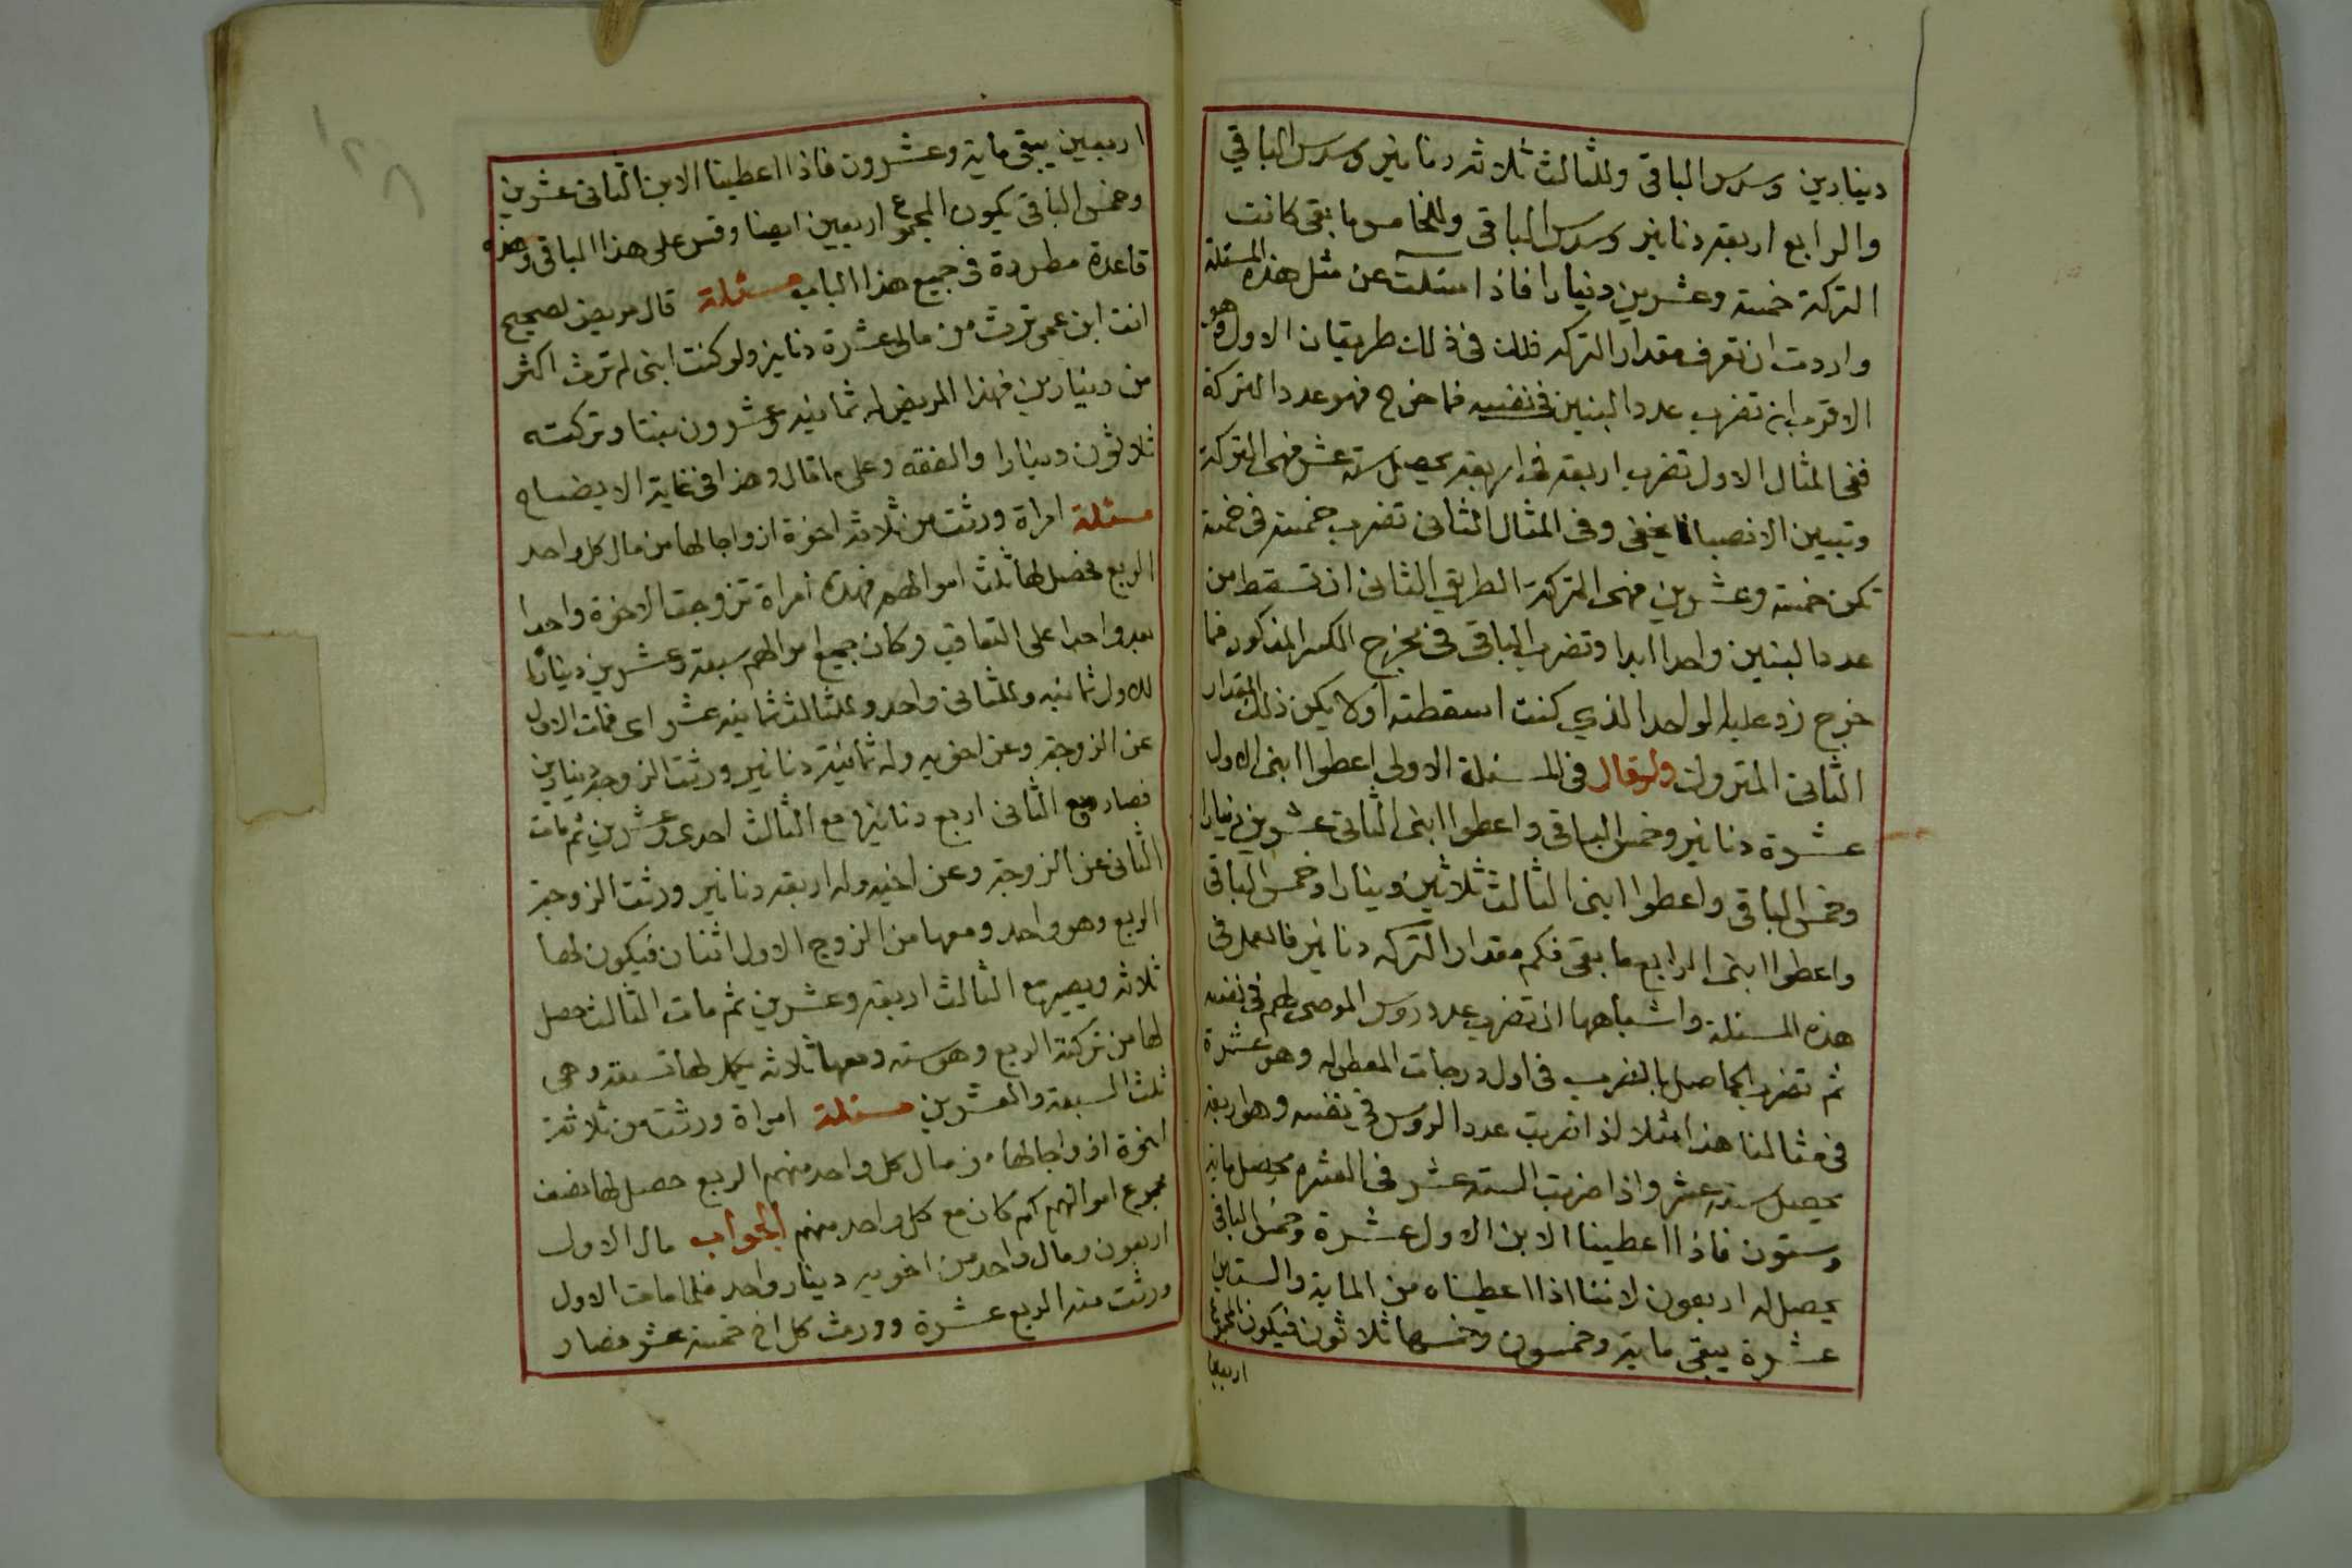 دينارين وسدس الباقى وللثالث ثلاثه دنانير وسدس الباقي
والرابع اربعه دنانير وسدس الباقى وللخامس ما بقى كانت
التركة خمسة وعشرين دينارا فاذا سئلت عن مثل هذه المسئلة
واردت ان تعرف مقدار التركه فلك فى ذلك طريقان الاول وهو
الاقرب ان تضرب عدد البنين فى نفسه فما خرج فهو عدد التركة
ففى المثال الاول تضرب اربعه فى اربعه يحصل سته عشر فهى التركة
وتبيين الانصبا يخفى وفى المثال الثانى تضرب خمسة فى خمسة
تكن خمسة وعشرين فهى التركة الطريق الثانى ان تسقط من
عدد البنين واحدا ابدا وتضرب الباقى فى مخرج الكسر المذكور فما
خرج زد عليه الواحد الذي كنت اسقطته اولا يكن ذلك المقدار
الثانى المتروك ولو قال فى المسئلة الاولى اعطوا ابنى الاول
عشرة دنانير وخمس الباقى واعطوا ابنى الثانى عشرين دينارا
وخمس الباقى واعطوا ابنى الثالث ثلاثين دينارا وخمس الباقى
واعطوا ابنى الرابع ما بقى فكم مقدار التركه دنانير فالعمل فى
هذه المسئلة واشباهها ان تضرب عدد روس الموصى لهم فى نفسه
ثم تضرب الحاصل بالضرب فى اول درجات المعطى له وهو عشرة
فى مثالنا هذا مثلا اذا ضربت عدد الروس فى نفسه وهو اربعه
يحصل سته عشر واذا ضربت الستة عشر فى العشره يحصل مايه
وستون فاذا اعطينا الابن الاول عشرة وخمس الباقى
يحصل له اربعون لاننا اذا اعطيناه من الماية والستين
عشرة يبقى ماية وخمسون وخمسها ثلاثون فيكون المجموع
اربعين
اربعين يبقى ماية وعشرون فاذا اعطينا الابن الثانى عشرين
وخمس الباقى يكون المجموع اربعين ايضا وقس على هذا الباقى وهذه
قاعدة مطردة فى جميع هذا الباب مسئلة قال مريض لصحيح
انت ابن عمى ترث من مالى عشرة دنانير ولو كنت ابنى لم ترث اكثر
من دينارين فهذا المريض له ثمانيه وعشرون بنتا وتركته
ثلاثون دينارا والفقه وعلى ما قال وهذا فى غاية الايضاح
مسئلة امراة ورثت من ثلاثه اخوة ازواجا لها من مال كل واحد
الربع فحصل لها ثلث اموالهم فهذه امراة تزوجت الاخوة واحدا
بعد واحدا على التعاقب وكان جميع اموالهم سبعة وعشرين دينارا
للاول ثمانيه وللثانى واحد وللثالث ثمانيه عشر اى فمات الاول
عن الزوجة وعن اخويه وله ثمانية دنانير ورثت الزوجة دينارين
فصار مع الثانى اربع دنانير ومع الثالث احدى وعشرين ثم مات
الثانى عن الزوجة وعن اخيه وله اربعه دنانير ورثت الزوجة
الربع وهو واحد ومعها من الزوج الاول اثنان فيكون لها
ثلاثه ويصير مع الثالث اربعه وعشرين ثم مات الثالث حصل
لها من تركته الربع وهو سته ومعها ثلاثه يكمل لها تسعة وهى
ثلث السبعة والعشرين مسئلة امراة ورثت من ثلاثة
اخوة ازواجا لها من مال كل واحد منهم الربع حصل لها نصف
مجموع اموالهم كم كان مع كل واحد منهم الجواب مال الاول
اربعون ومال واحد من اخويه دينار واحد فلما مات الاول
ورثت منه الربع عشرة وورث كل اخ خمسة عشر فصار